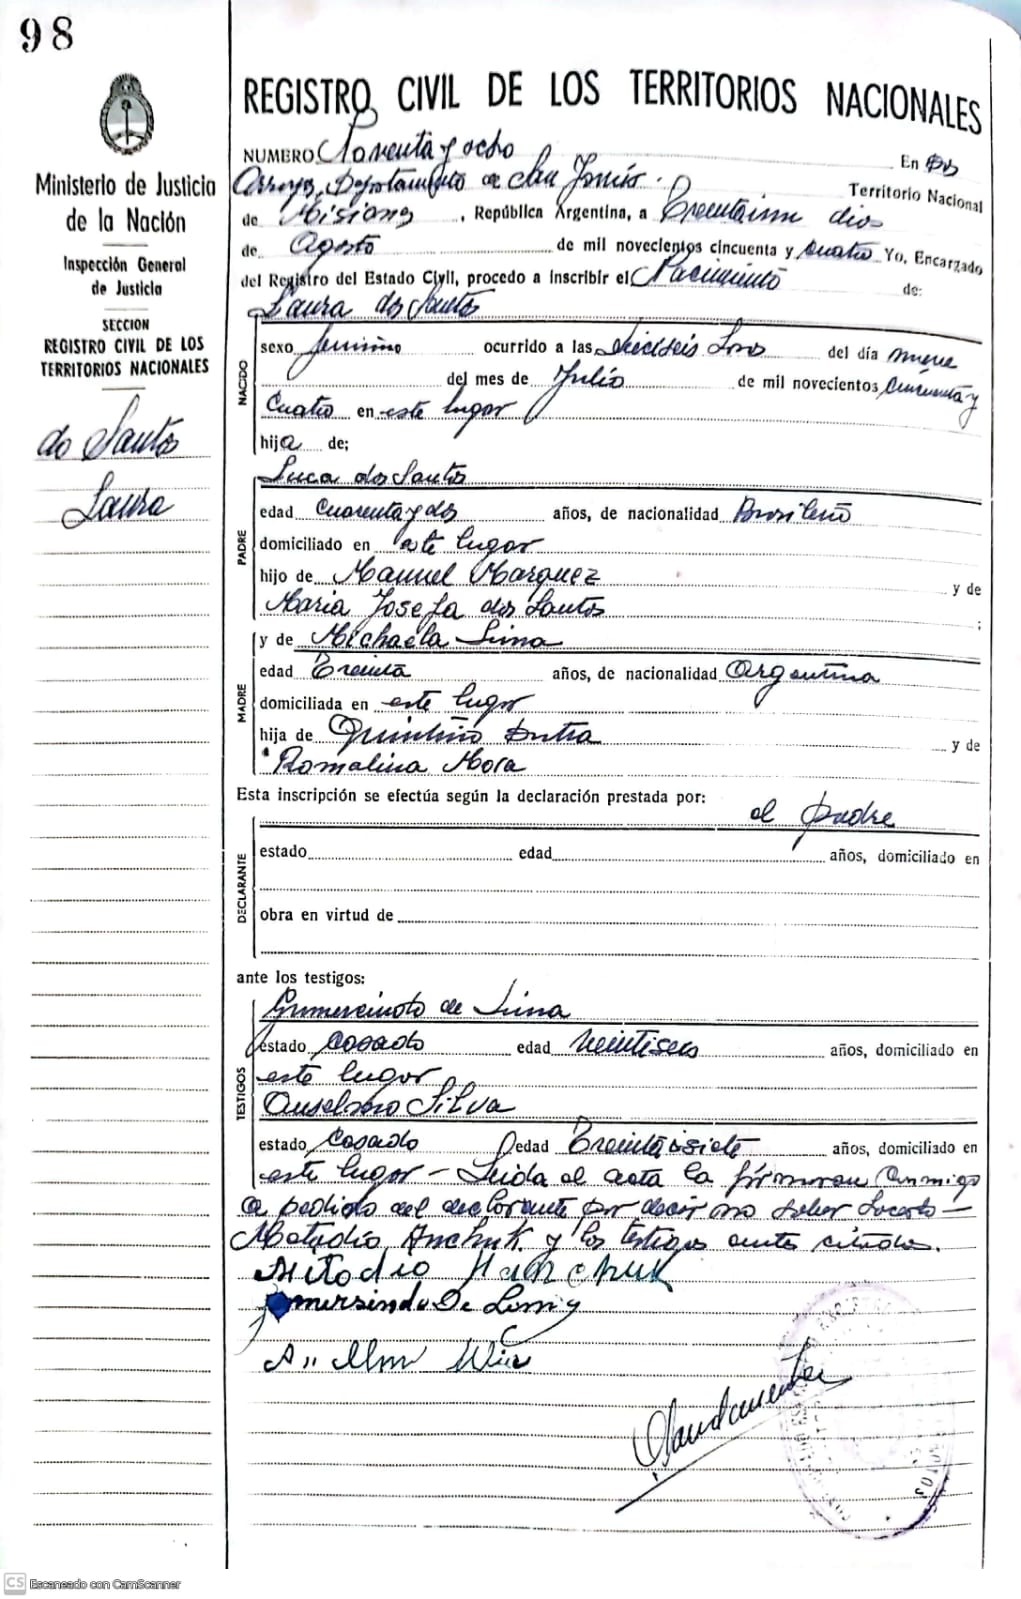 98
REGISTRO CIVIL DE LOS TERRITORIOS NACIONALES
Ministerio de Justicia
de la Nación
Inspección General
de Justicia
SECCION
REGISTRO CIVIL DE LOS
TERRITORIOS NACIONALES
do Santos
Laura
NUMERO Noventa y ocho En Dos
Arroyos, Departamento de Territorio Nacional
de Misiones, República Argentina, a treintaiun dias
de Agosto de mil novecientos cincuenta y cuatro Yo, Encargado
del Registro del Estado Civil, procedo a inscribir el Nacimiento de:
Laura dos Santos
NACIDO
sexo femenino ocurrido a las dieciseis del día nueve
del mes de Julio de mil novecientos cincuenta y
cuatro en este lugar
hija de;
PADRE
Luca dos Santos
edad Cuarenta y dos años, de nacionalidad Brasileño
domiciliado en este lugar
hijo de Manuel Marquez y de
Maria Josefa dos Santos ;
MADRE
y de Michaela Lima
edad Treinta años, de nacionalidad Argentina
domiciliada en este lugar
hija de Dutra y de
Romalina Mora
Esta inscripción se efectúa según la declaración prestada por: el padre
DECLARANTE
estado edad años, domiciliado en
obra en virtud de
ante los testigos:
TESTIGOS
Gumercindo de Lima
estado casado edad veintiseis años, domiciliado en
este lugar
Anselmo Silva
estado Casado edad Treintaisiete años, domiciliado en
este lugar - Leida el acta la firmaron conmigo
a pedido del declarante por decir no saber hacerlo -
y los testigos antes citados.
Mitodio Hanchuk
De
CS Escaneado con CamScanner